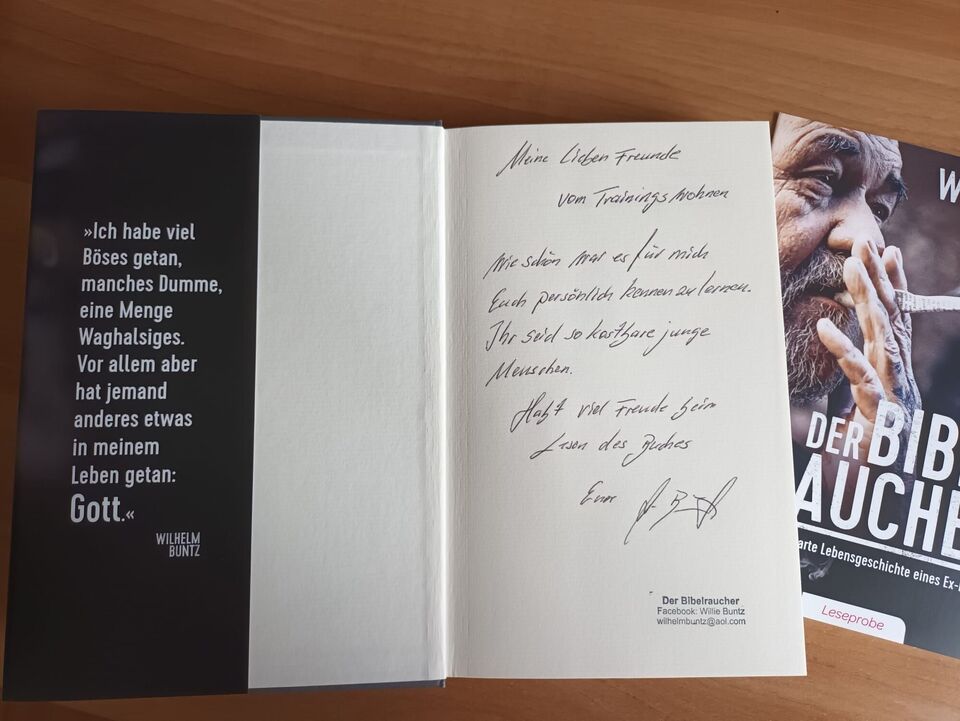 »Ich habe viel
Böses getan,
manches Dumme,
eine Menge
Waghalsiges.
Vor allem aber
hat jemand
anderes etwas
in meinem
Leben getan:
Gott.«
WILHELM
BUNTZ
Meine Lieben Freunde
vom Trainings wohnen
wie schön war es für mich
Euch persönlich kennen zu lernen.
Ihr seid so kostbare junge
Menschen.
Habt viel Freude beim
Lesen des Buches
Euer
Der Bibelraucher
Facebook: Willie Buntz
wilhelmbuntz@aol.com
W
DER BIB
AUCHE
arte Lebensgeschichte eines Ex-
Leseprobe